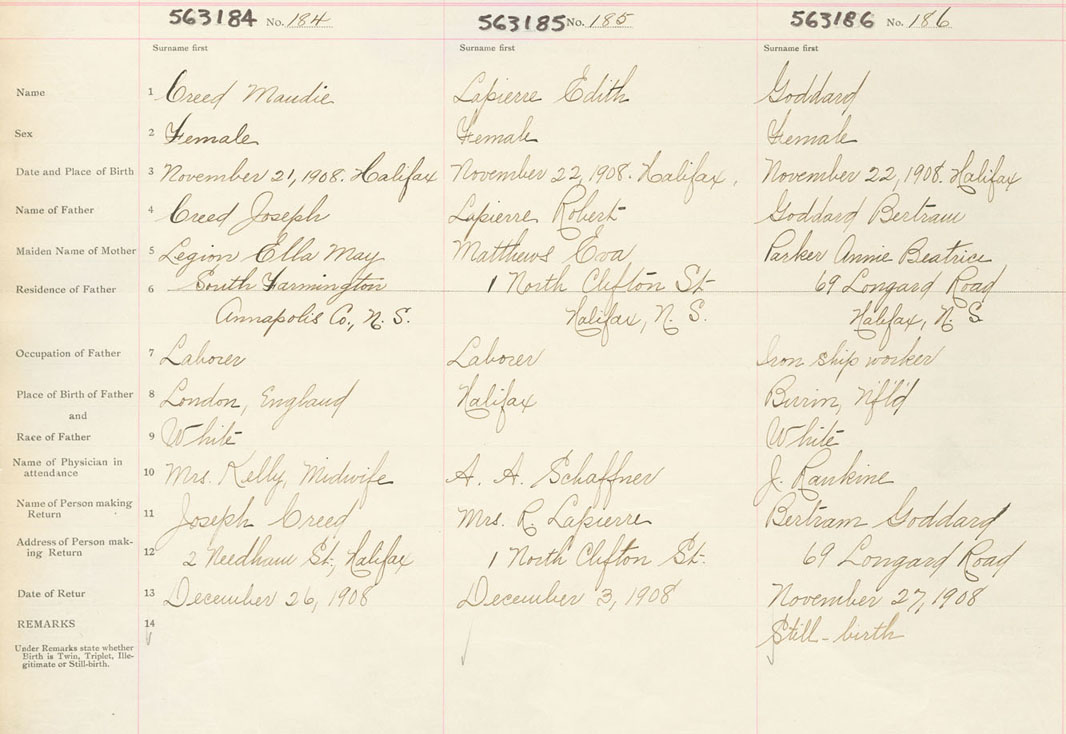 563184 No. 184 563185 No. 185 563186 No. 186
Surname first Surname first Surname first
Name 1 Creed Maudie Lapierre Edith Goddard
Sex 2 Female Female Female
Date and Place of Birth 3 November 21, 1908. Halifax November 22, 1908. Halifax. November 22, 1908. Halifax
Name of Father 4 Creed Joseph Lapierre Robert Goddard Bertram
Maiden Name of Mother 5 Legion Ella May Matthews Eva Parker Annie Beatrice
Residence of Father 6 South Farmington 1 North Clifton St. 69 Longard Road
Annapolis Co., N. S. Halifax, N. S. Halifax, N S
Occupation of Father 7 Laborer Laborer Iron ship worker
Place of Birth of Father 8 London, England Halifax Birrin, Nfl'd
and
Race of Father 9 White White
Name of Physician in
attendance 10 Mrs. Kelly, Midwife A. A. Schaffner J. Rankine
Name of Person making
Return 11 Joseph Creed Mrs. R. Lapierre Bertram Goddard
Address of Person mak-
ing Return 12 2 Needham St., Halifax 1 North Clifton St. 69 Longard Road
Date of Retur 13 December 26, 1908 December 3, 1908 November 27, 1908
REMARKS 14 Still-birth
Under Remarks state whether
Birth is Twin, Triplet, Ille-
gitimate or Still-birth.